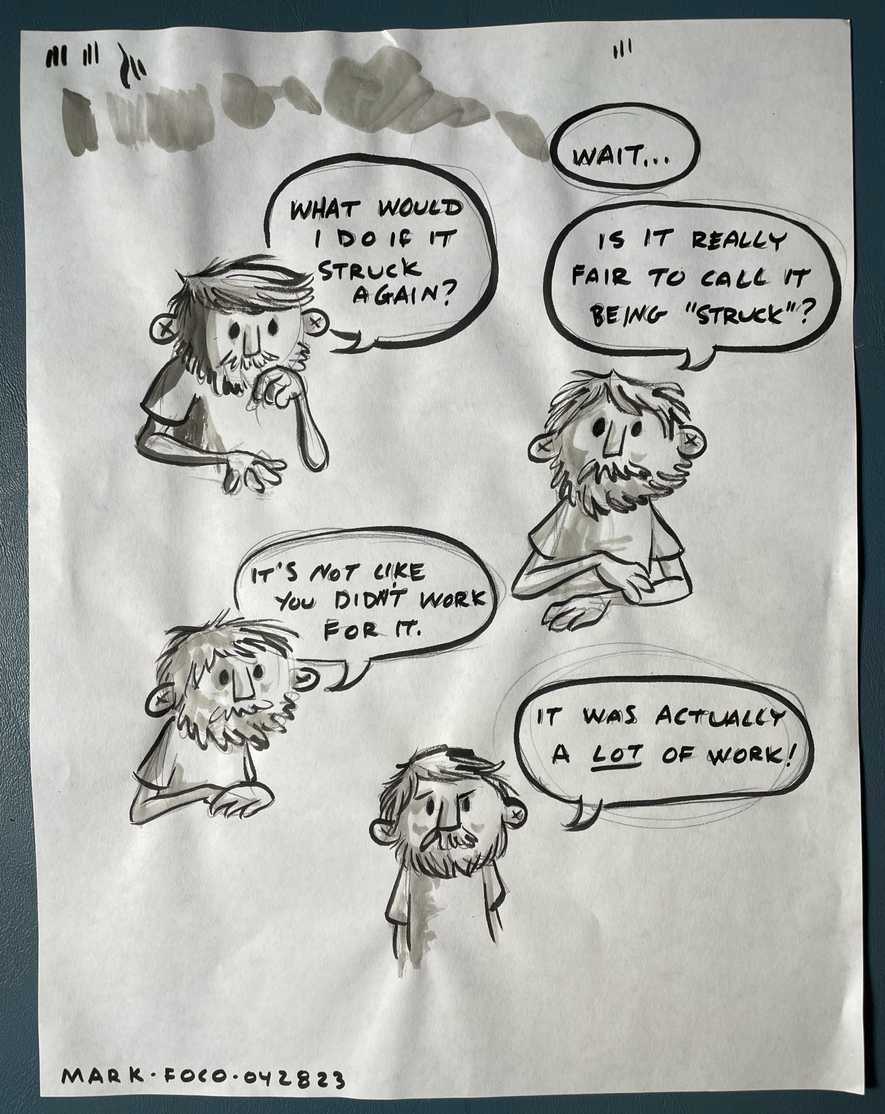 WHAT WOULD
I DO IF IT
STRUCK
AGAIN?
WAIT...
IS IT REALLY
FAIR TO CALL IT
BEING "STRUCK"?
IT'S NOT LIKE
YOU DIDN'T WORK
FOR IT.
IT WAS ACTUALLY
A LOT OF WORK!
MARK·FOCO·042823